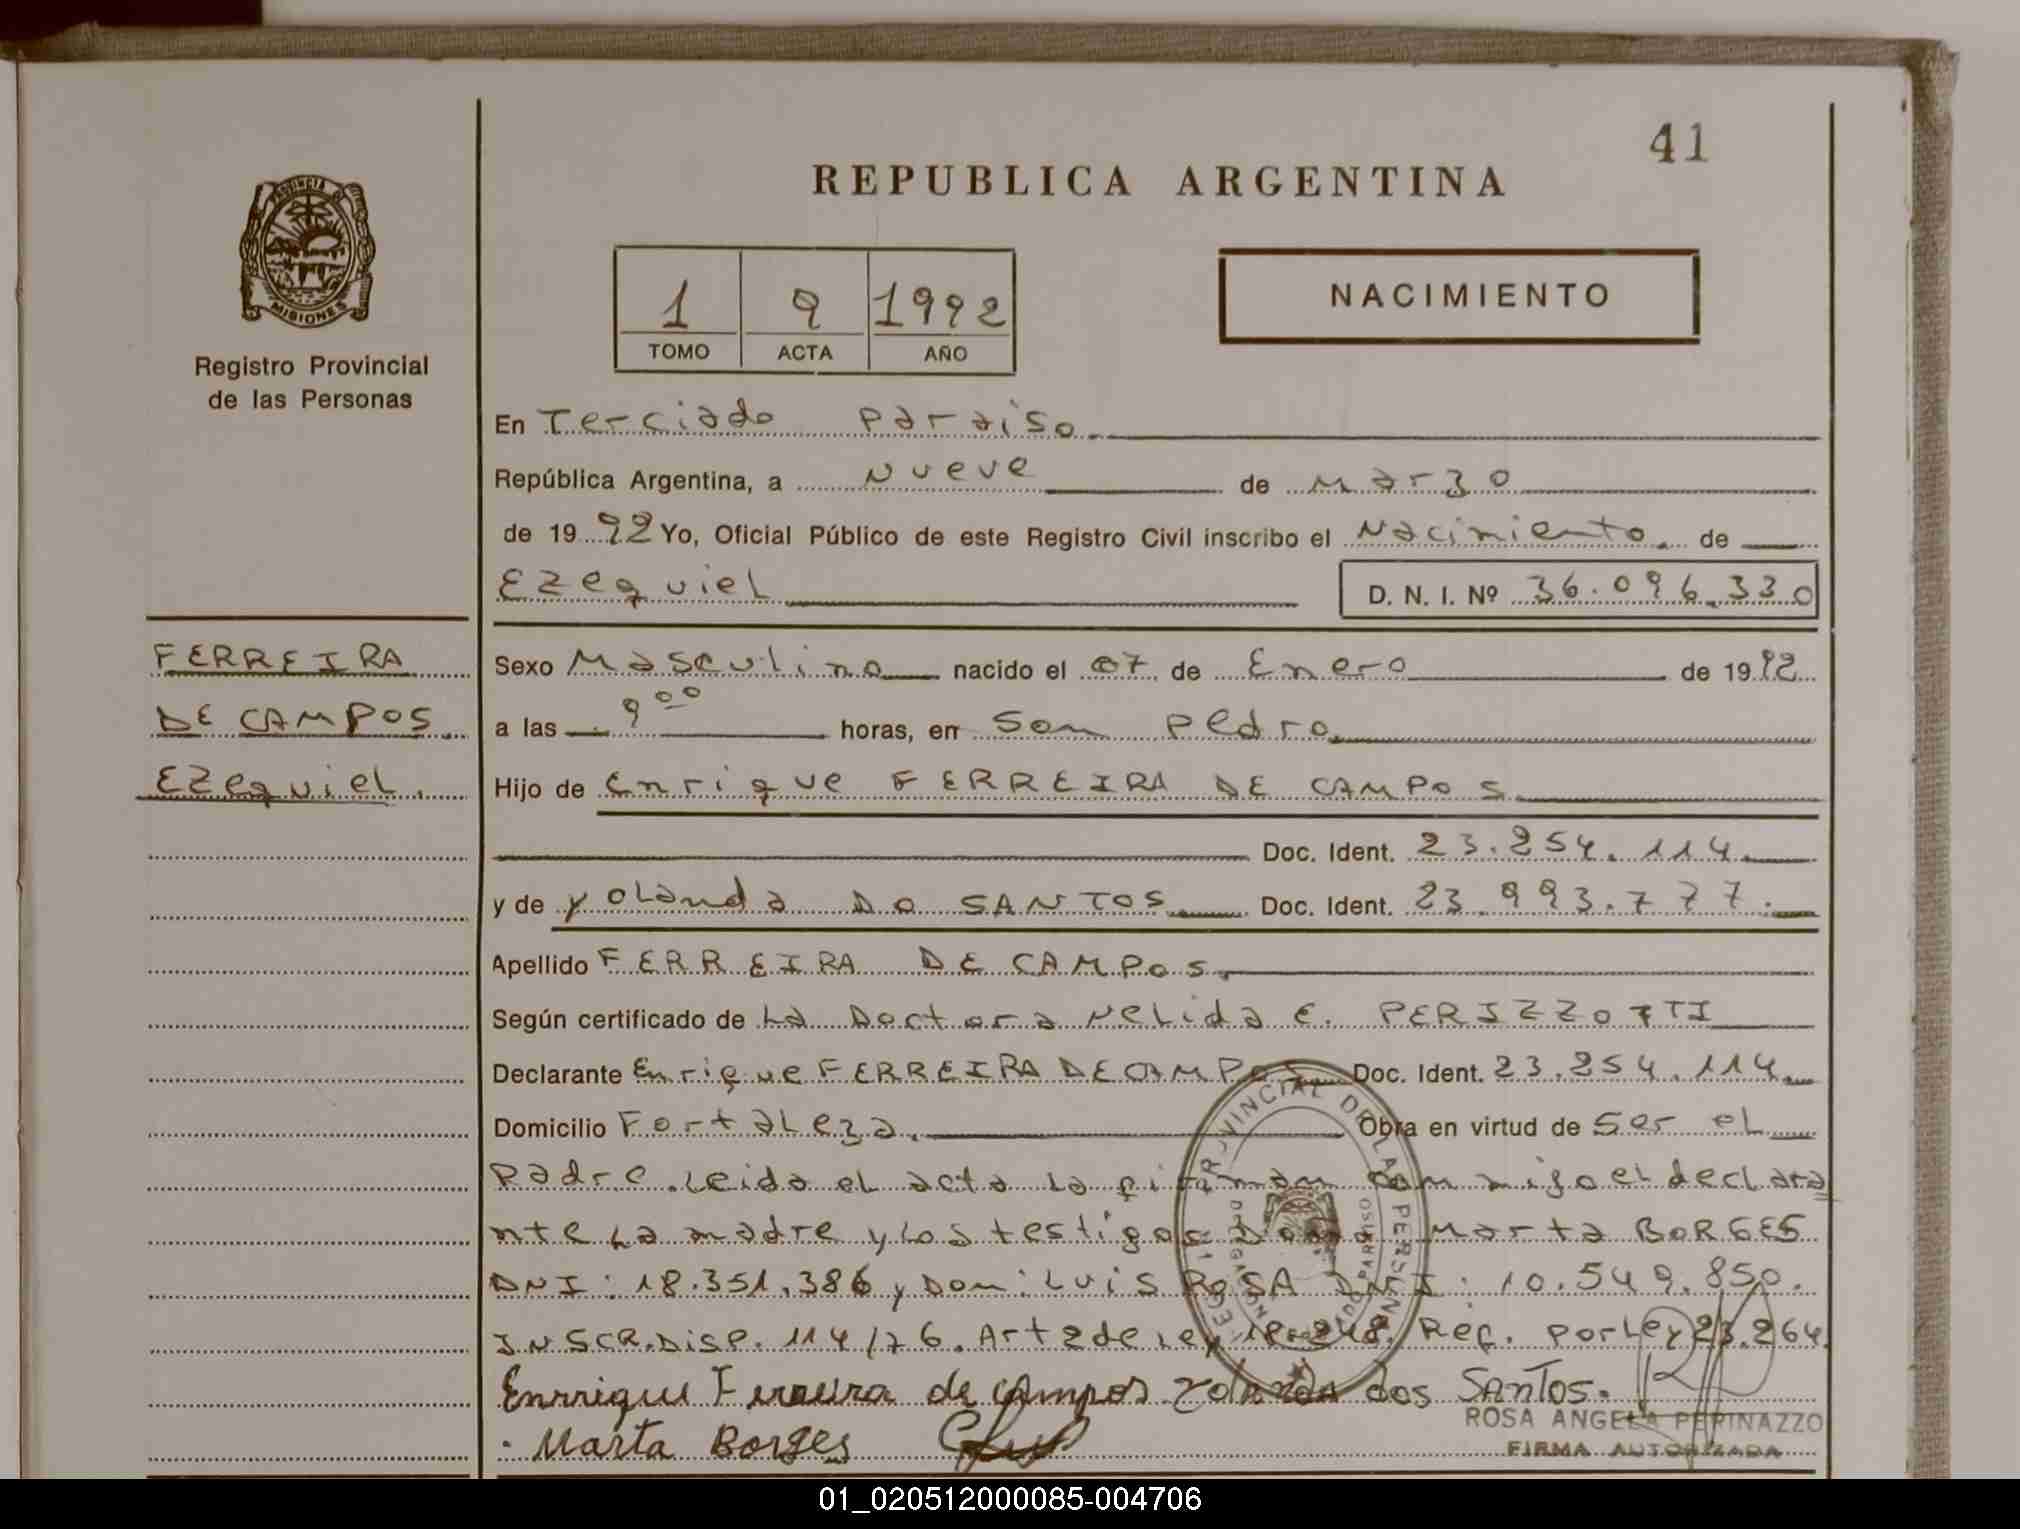 41
REPUBLICA ARGENTINA
PROVINCIA DE
MISIONES
Registro Provincial
de las Personas
1 9 1992
TOMO ACTA AÑO
NACIMIENTO
En Terciado Paraiso.
República Argentina, a Nueve de Marzo
de 19 92 Yo, Oficial Público de este Registro Civil inscribo el Nacimiento. de
Ezequiel D. N. I. Nº 36.096.330
FERREIRA
DE CAMPOS.
Ezequiel.
Sexo Masculino nacido el 07 de Enero de 19 92
a las 9 00 horas, en San Pedro
Hijo de Enrique FERREIRA DE CAMPOS
Doc. Ident. 23.254.114
y de Yolanda DO SANTOS Doc. Ident. 23.993.777.
Apellido FERREIRA DE CAMPOS.
Según certificado de La Doctora Nelida E. PERIZZOTTI
Declarante Enrique FERREIRA DE CAMPOS Doc. Ident. 23.254.114
Domicilio Fortaleza. Obra en virtud de Ser el
Padre. Leida el acta la firman conmigo el declara
nte La madre y los testigos Doña Marta BORGES
DNI: 18.351.386 y Don: LUIS ROSA DNI: 10.549.850.
INSCR. Disp. 114/76. Art 2 de Ley 18.248. Ref. por Ley 23.264.
Enrrique Ferreira de campos Yolanda dos SANTOS.
Marta Borges
ROSA ANGELA PERINAZZO
FIRMA AUTORIZADA
01_020512000085-004706